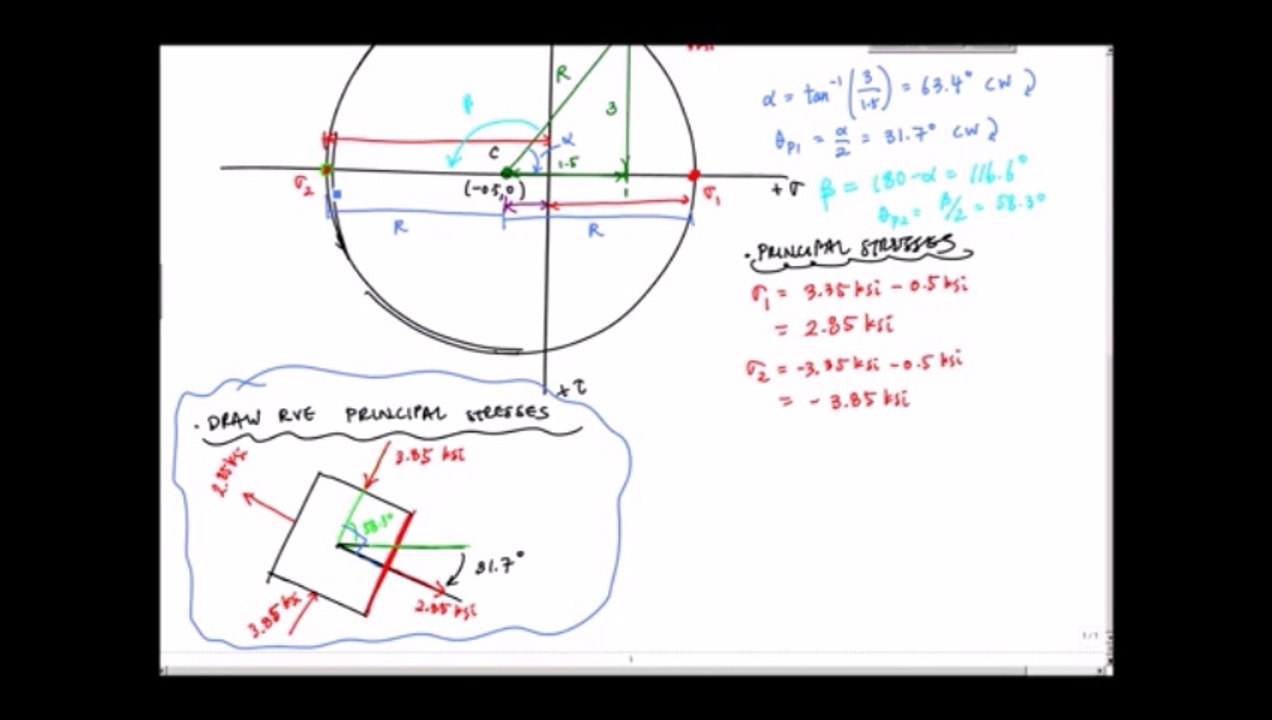 R
β
3
α
C
1.5
σ2
(-0.5,0)
σ1
+σ
R
R
+τ
α = tan⁻¹(3/1.5) = 63.4° CW
θp1 = α/2 = 31.7° CW
β = 180-α = 116.6°
θp2 = β/2 = 58.3°
. PRINCIPAL STRESSES
σ1 = 3.35 ksi - 0.5 ksi
= 2.85 ksi
σ2 = -3.35 ksi - 0.5 ksi
= - 3.85 ksi
. DRAW RVE PRINCIPAL STRESSES
2.85 ksi
3.85 ksi
58.3°
31.7°
2.85 ksi
3.85 ksi
1/1
1